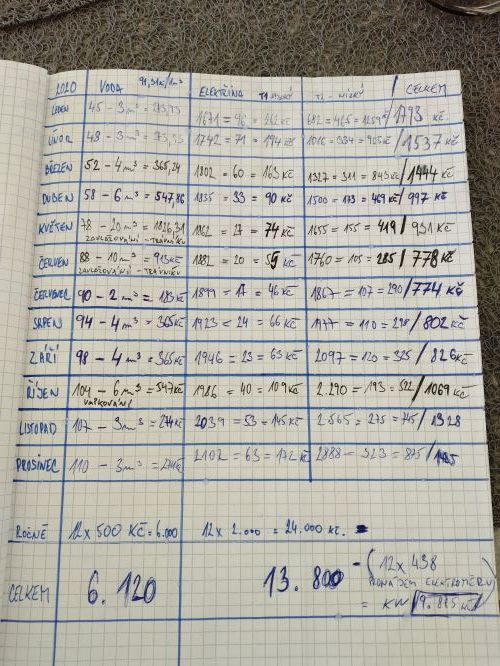 2020 VODA 91,31 Kč/1m³ ELEKTŘINA T1 T2 - NÍZKÝ / CELKEM
LEDEN 45 - 3m³ = 273,93 1671 = 96 = 262 Kč 682 = 465 = / 1793 Kč
ÚNOR 48 - 3m³ = 1742 = 71 = 194 Kč 1016 = 334 = 905 Kč / 1537 Kč
BŘEZEN 52 - 4m³ = 365,24 1802 - 60 = 163 Kč 1327 = 311 = 843 Kč / 1444 Kč
DUBEN 58 - 6m³ = 547,86 1835 = 33 = 90 Kč 1500 = 173 = 469 Kč / 997 Kč
KVĚTEN 78 - 20m³ = 1826,31 1862 = 27 = 74 Kč 1655 = 155 = 419 / 931 Kč
ZAVLAŽOVÁNÍ - TRÁVNÍKU
ČERVEN 88 - 10m³ = 913 Kč 1882 = 20 = 55 Kč 1760 = 105 = 285 / 778 Kč
ZAVLAŽOVÁNÍ - TRÁVNÍKU
ČERVENEC 90 - 2m³ = 183 Kč 1899 = 17 = 46 Kč 1867 = 107 = 290 / 774 Kč
SRPEN 94 - 4m³ = 365 Kč 1923 = 24 = 66 Kč 1977 = 110 = 298 / 802 Kč
ZÁŘÍ 98 - 4m³ = 365 Kč 1946 = 23 = 63 Kč 2097 = 120 = 325 / 826 Kč
ŘÍJEN 104 - 6m³ = 547 Kč 1986 = 40 = 109 Kč 2.290 = 193 = 522 / 1069 Kč
LISTOPAD 107 - 3m³ = 274 Kč 2039 = 53 = 145 Kč 2565 = 275 = 745 / 1328
PROSINEC 110 - 3m³ = 2102 = 63 = 172 Kč 2888 - 323 = 875 / 1485
ROČNĚ 12 x 500 KČ = 6.000 12 x 2.000 = 24.000 Kč.
CELKEM 6.120 13.800 - ( 12 x 438
PRONÁJEM ELEKTROMĚRU
= KW 9.875 Kč